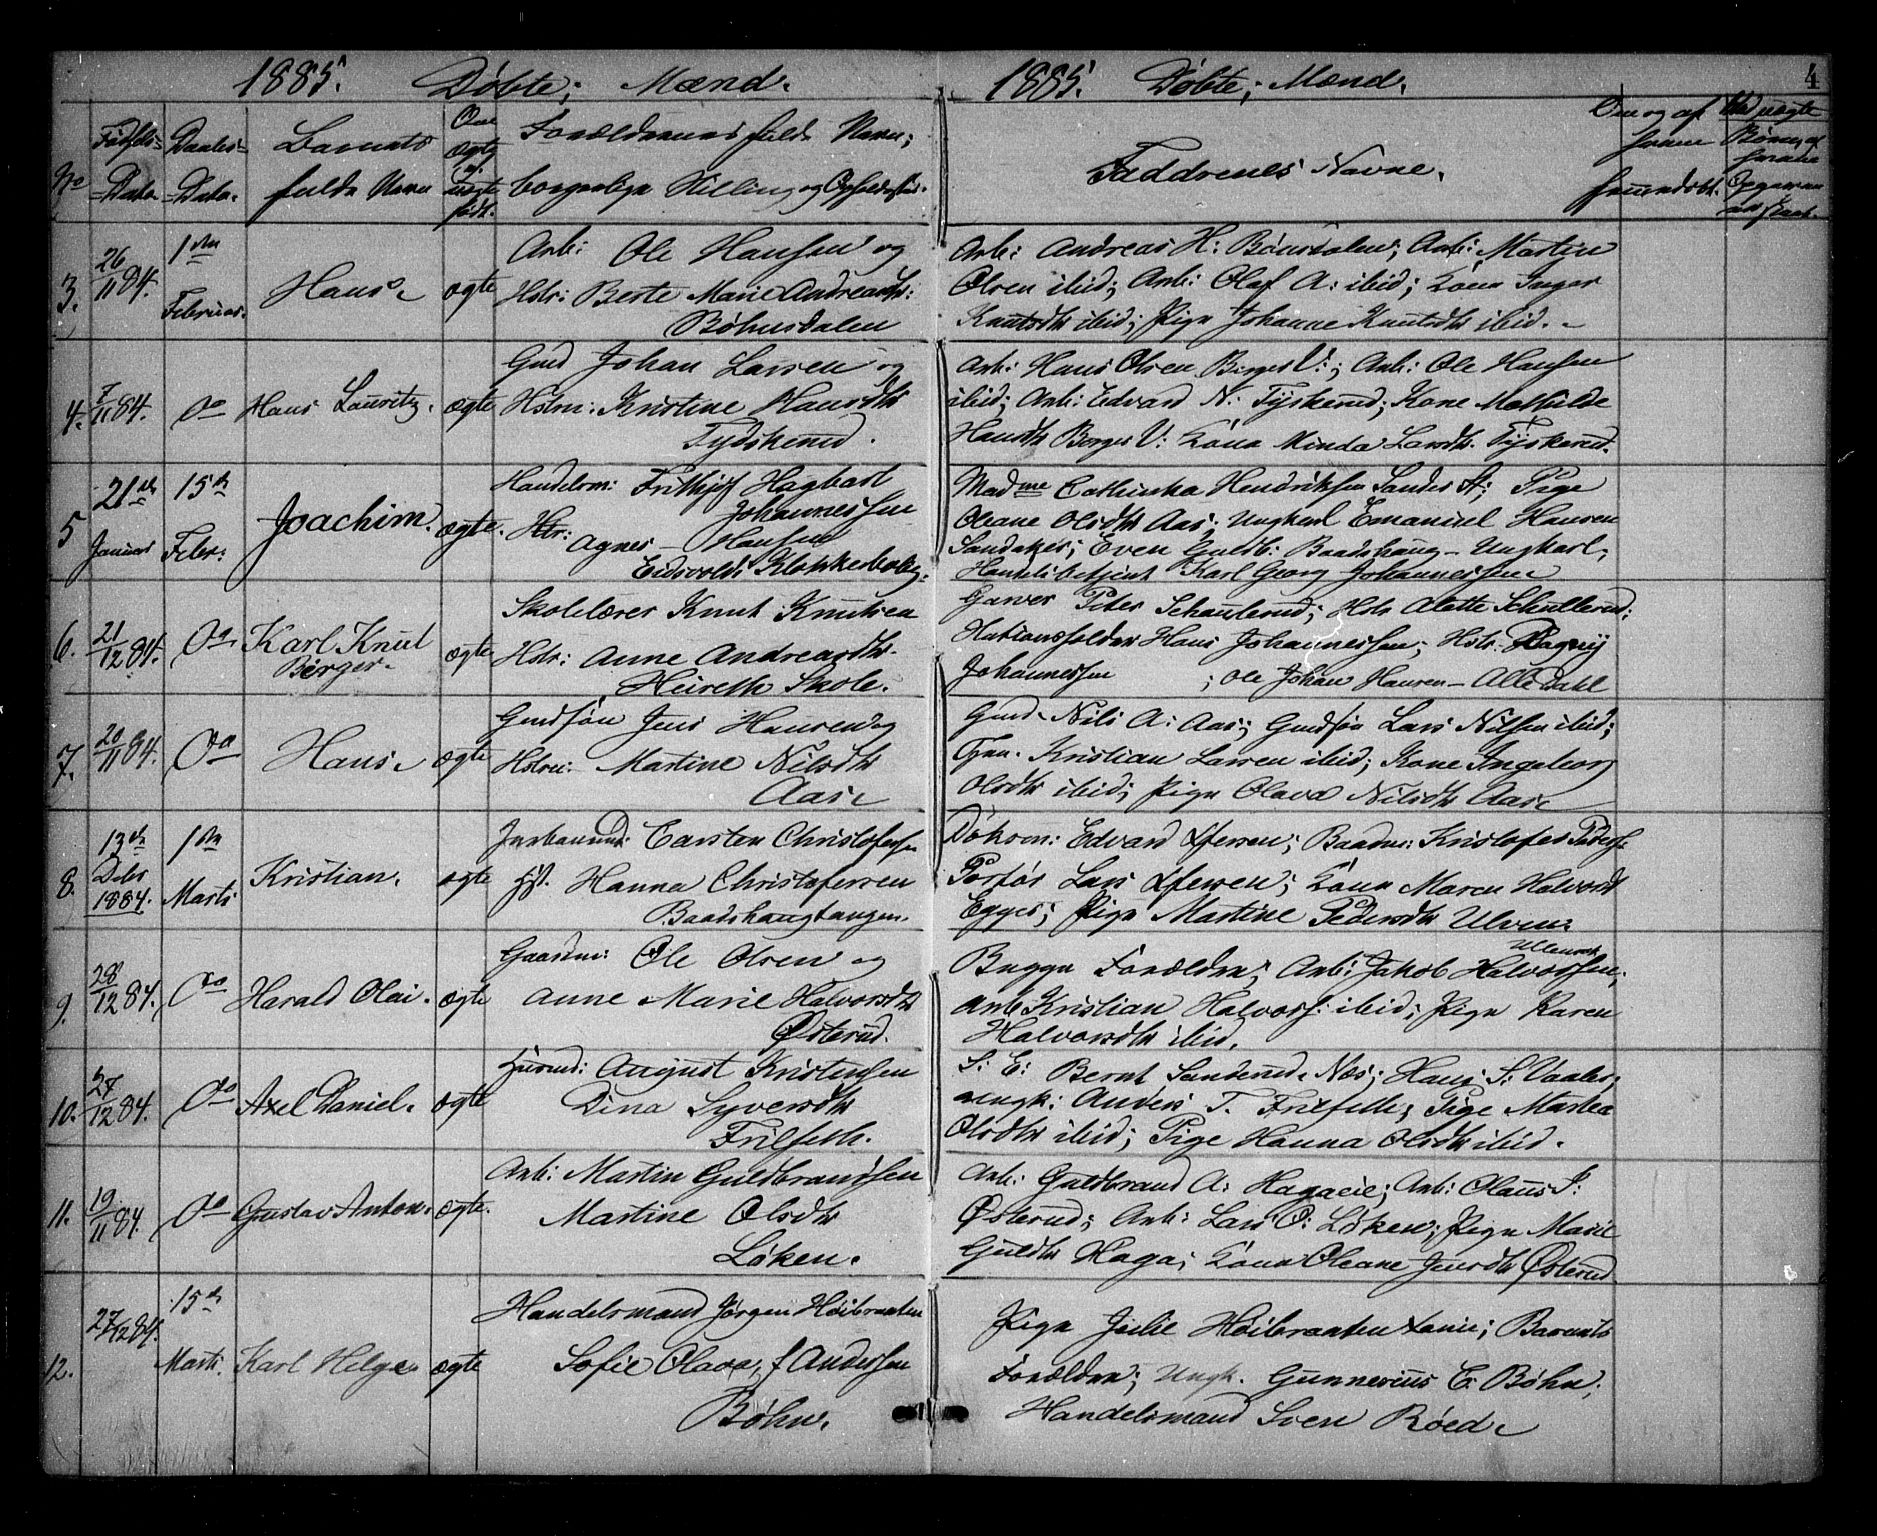 1885. Døbte; Mænd.
1885. Døbte; Mænd. 4
No
Fødsels-
Dato
Daabs-
Dato.
Barnets
fulde Navn
Om
Ægte
el.
uægte
født.
Forældrenes fulde Navn;
borgerlige Stilling og Opholdssted.
Faddrenes Navne.
Om og af
hvem
hjemmedøbt.
Ved uægte
3.
26/11 84.
1ste
Februar.
Hans
ægte
Arb: Ole Hansen og
Hstr: Berte Marie Andreasdtr:
Bøhnsdalen
Arb: Andreas H: Bønsdalen; Arb: Martin
Olsen ibid; Arb: Olaf A: ibid; Kone Inger
Knutsdtr ibid; Pige Johanne Knutsdtr ibid.
4.
7/11 84.
Do
Hans Lauritz.
ægte
Gmd Johan Larsen og
Hstru: Kristine Hansdtr
Tydskerud.
Arb: Hans Olsen Borges V:; Arb: Ole Hansen
ibid; Arb: Edvard N: Tyskerud; Kone Mathilde
Hansdtr Borges V: Kone Minda Larsdtr. Tyskerud.
5
21de
Januar
15de
Febr:
Joachim.
ægte.
Handelsm: Frithjof Hagbart
Johannessen
Hstr: Agnes Hansen
Eidsvolds
Madme Cathinka Hendriksen Sandes St; Pige
Oleane Olsdtr Aas; Ungkarl Emanuel Hansen
Sandaker; Even Guldb: Baadshaug - Ungkarl,
Handelsbetjent Karl Georg Johannessen
6.
21/12 84.
Do
Karl Knut
Birger.
ægte
Skolelærer Knut Knutsen
Hstr: Anne Andreasdtr.
Heireth Skole.
Garver Peter Schullerud; Hstr Alette Schullerud;
Stationsholder Hans Johannessen; Hstr: Dagny
Johannessen ; Ole Johan Hansen - Alle Dahl
7.
20/11 84.
Do
Hans
ægte
Gmdsøn Jens Hansen og
Hstru: Martine Nilsdtr
Aas
Gmd. Nils A: Aas; Gmdsøn Lars Nilsen ibid;
Tjen. Kristian Larsen ibid; Kone Ingeborg
Olsdtr ibid; Pige Olava Nilsdtr Aas
8.
13de
Debr
1884.
1ste
Marts
Kristian.
ægte
Carsten Christofersen
Hanna Christofersen
Baadshaugtangen.
Edvard Iversen; Kristofer Peders
Lars Iversen; Kone Maren Halvorsdt
Egges; Pige Martine Pedersdtr Ulven
9.
28/12 84.
Do
Harald Olai.
ægte
Gaardm: Ole Olsen og
Anne Marie Halvorsdtr
Østerud.
Begge Forældre; Arb: Jakob Halvorsen;
Arb Kristian Halvors: ibid; Pige Karen
Halvorsdtr ibid.
10.
27/12 84.
Do
Axel Daniel.
ægte
Husmd: August Kristensen
Dina Syversdtr
Frilseth.
S: E: Bernt Sanderud. Næs; Hans S: Vaaler,
ungk: Anders T. Frilseth; Pige Marthe
Olsdtr ibid; Pige Hanna Olsdtr ibid.
11.
19/11 84.
Do
Gustav Anton.
ægte.
Arb: Martin Guldbrandsen
Martine Olsdtr
Løken.
Arb: Guldbrand A: Hagaeie; Arb: Olaus S:
Østerud; Arb: Lars O: Løken; Pige Marie
Guldtr Haga; Kone Oleane Jensdtr Østerud
12.
27/12 84.
15de
Marts.
Karl Helge
ægte
Handelsmand Jørgen Høibraaten
Sofie Olava, f Andersen
Bøhn.
Pige Julie Høibraaten; Barnets
Forældre; Ungk. Gunnerius E. Bøhn;
Handelsmand Sven Røed